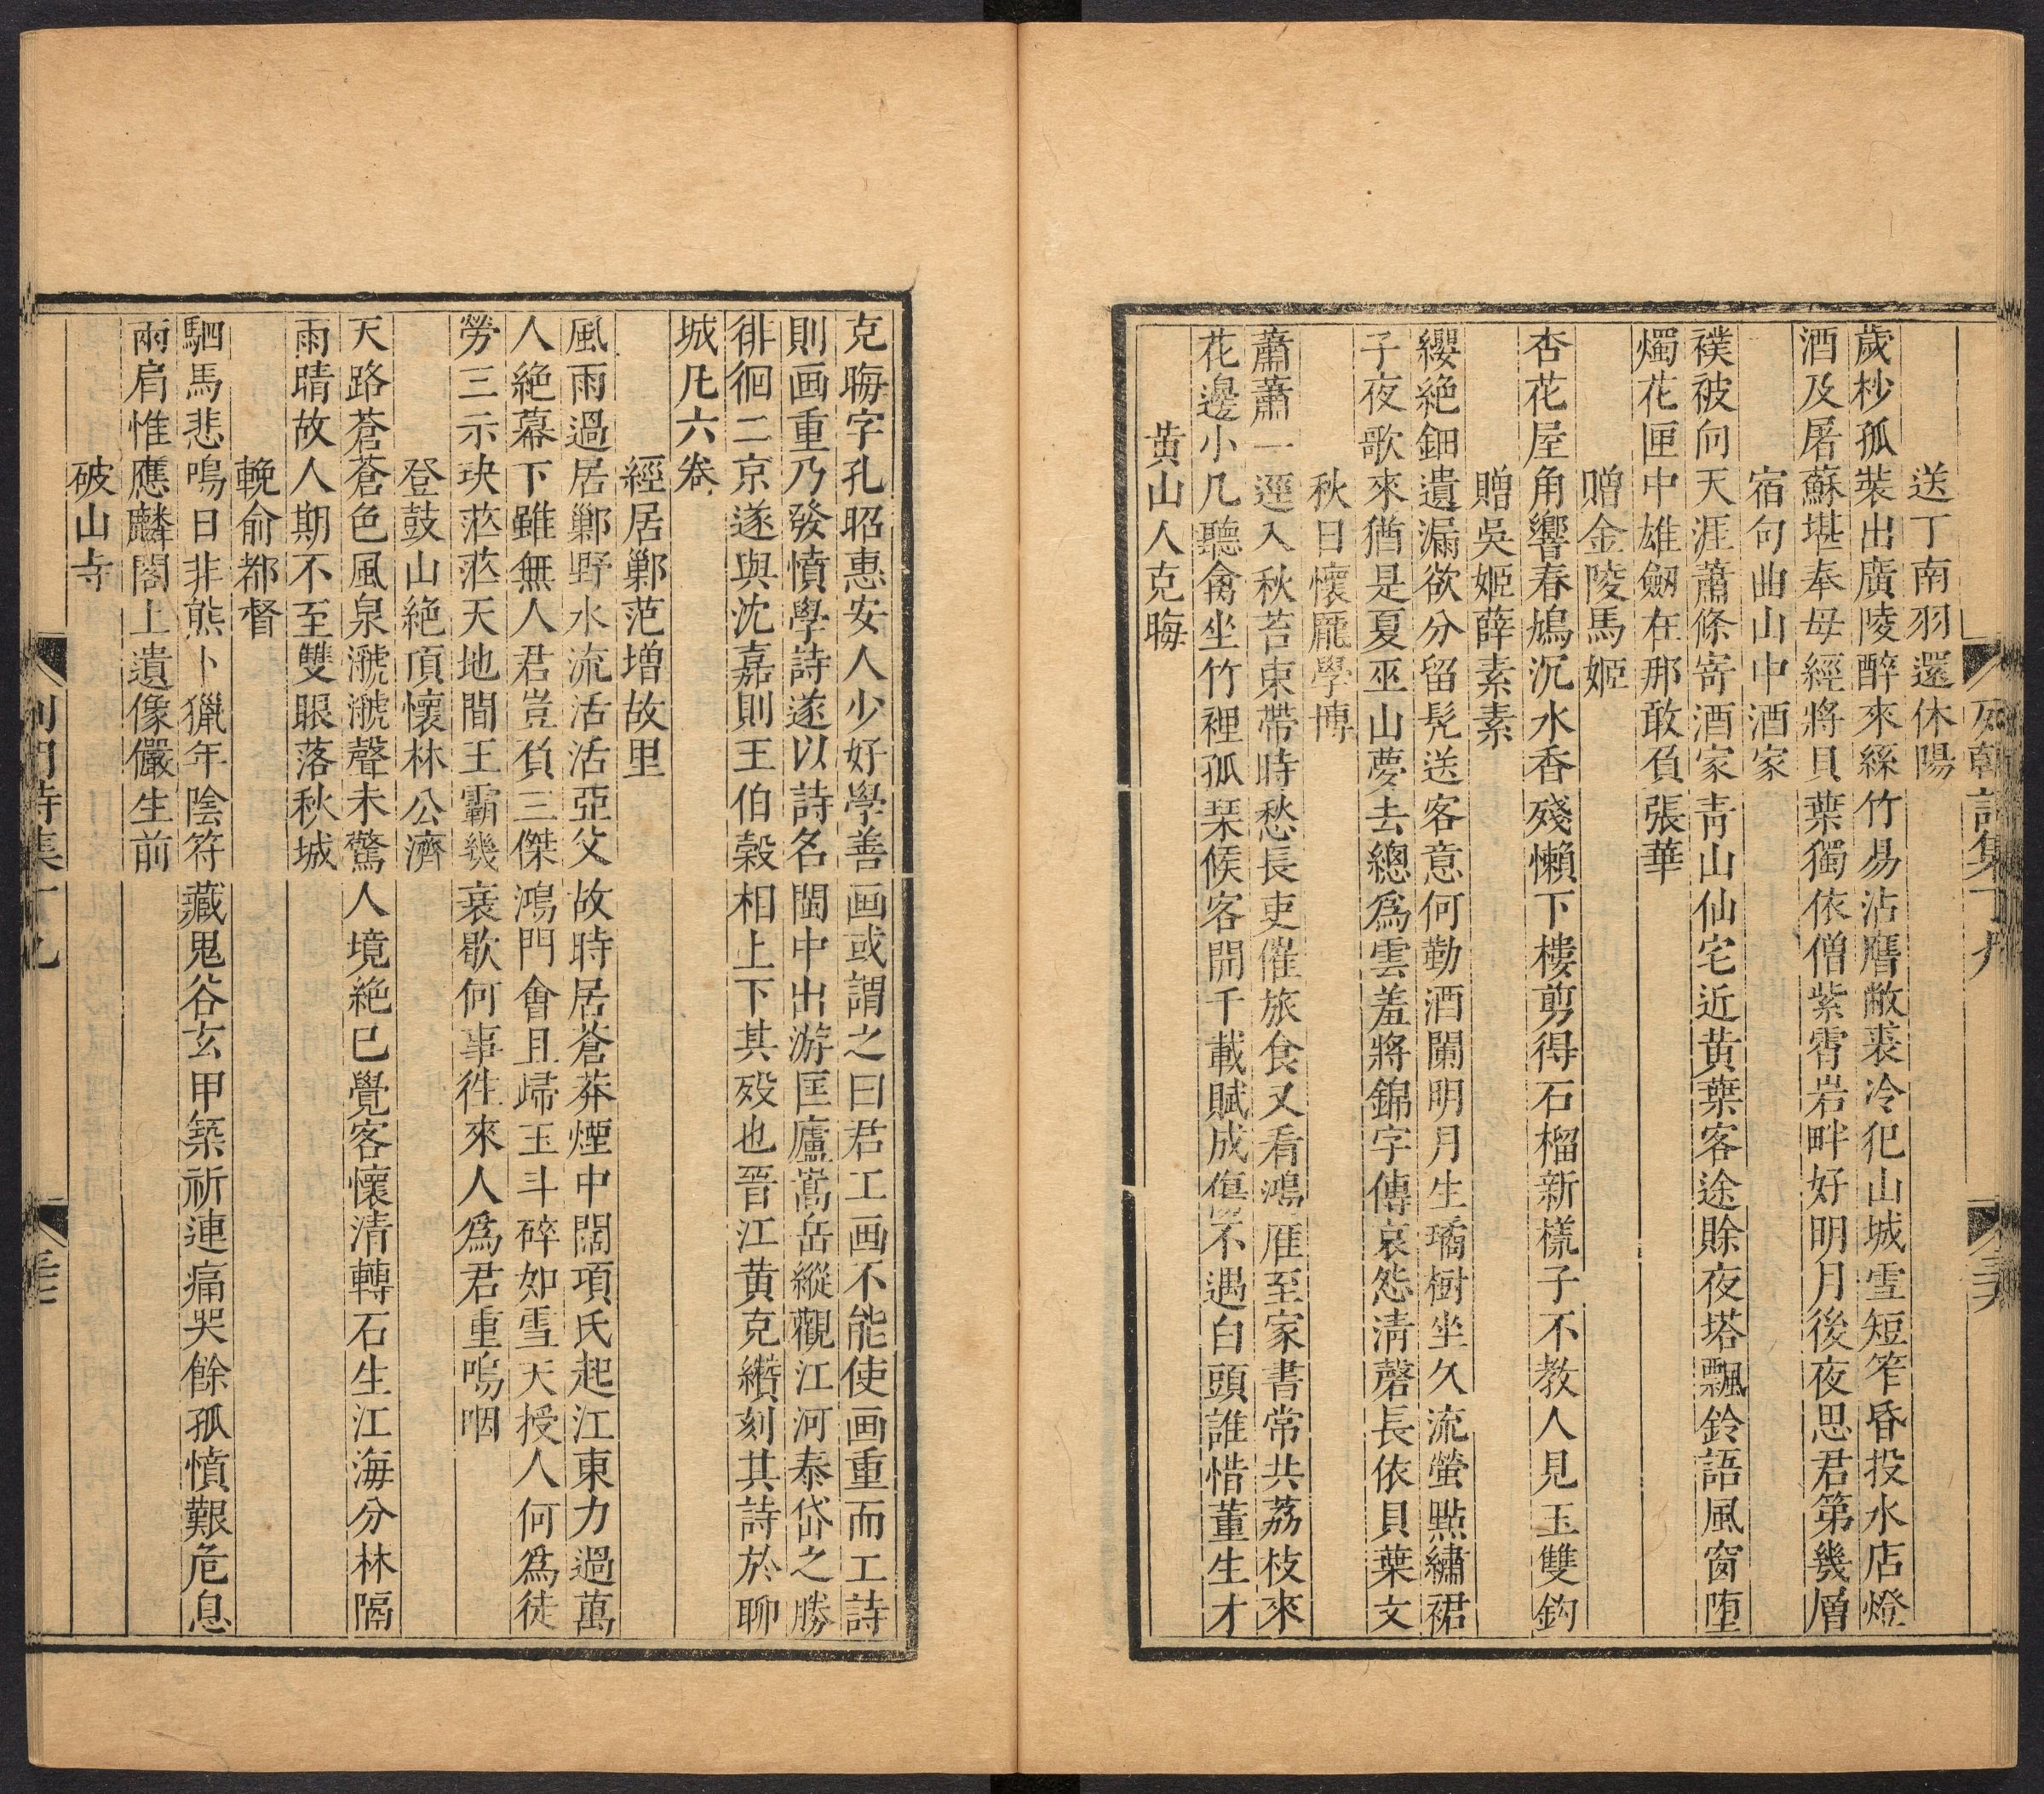 送丁南羽還休陽
歲杪孤裝出廣陵醉來絲竹易沾膺敝裘冷犯山城雪短笮昏投水店燈
酒及屠蘇堪奉母經將貝葉獨依僧紫霄岩畔好明月後夜思君第幾層
宿句曲山中酒家
襆被向天涯蕭條寄酒家靑山仙宅近黄葉客途賖夜塔飄鈴語風窗堕
燭花匣中雄劒在那敢負張華
贈金陵馬姬
杏花屋角響春鳩沉水香殘懶下樓剪得石榴新樣子不教人見玉雙鈎
贈吳姬薛素素
纓絶鈿遺漏欲分留髠送客意何勤酒闌明月生璚樹坐久流螢點繡裙
子夜歌來猶是夏巫山夢去總爲雲羞將錦字傳哀怨淸磬長依貝葉文
秋日懷龎學博
蕭蕭一逕入秋苔束帶時愁長吏催旅食又看鴻雁至家書常共荔枝來
花邊小几聽禽坐竹裡孤琹候客開千載賦成傷不遇白頭誰惜董生才
黄山人克晦
克晦字孔昭惠安人少好學善画或謂之曰君工画不能使画重而工詩
則画重乃發憤學詩遂以詩名閩中出游匡廬嵩岳縱觀江河泰岱之勝
徘徊二京遂與沈嘉則王伯穀相上下其殁也晉江黄克纘刻其詩於聊
城凡六卷
經居鄛范增故里
風雨過居鄛野水流活活亞父故時居蒼莽煙中闊項氏起江東力過萬
人絶幕下雖無人君豈負三傑鴻門會且歸玉斗碎如雪天授人何爲徒
勞三示玦茫茫天地間王霸幾衰歇何事徃來人爲君重嗚咽
登鼓山絶頂懷林公濟
天路蒼蒼色風泉㶁㶁聲未驚人境絶已覺客懷清轉石生江海分林隔
雨晴故人期不至雙眼落秋城
輓俞都督
駟馬悲鳴日非熊卜獵年陰符藏鬼谷玄甲築祈連痛哭餘孤憤艱危息
兩肩惟應麟閣上遺像儼生前
破山寺